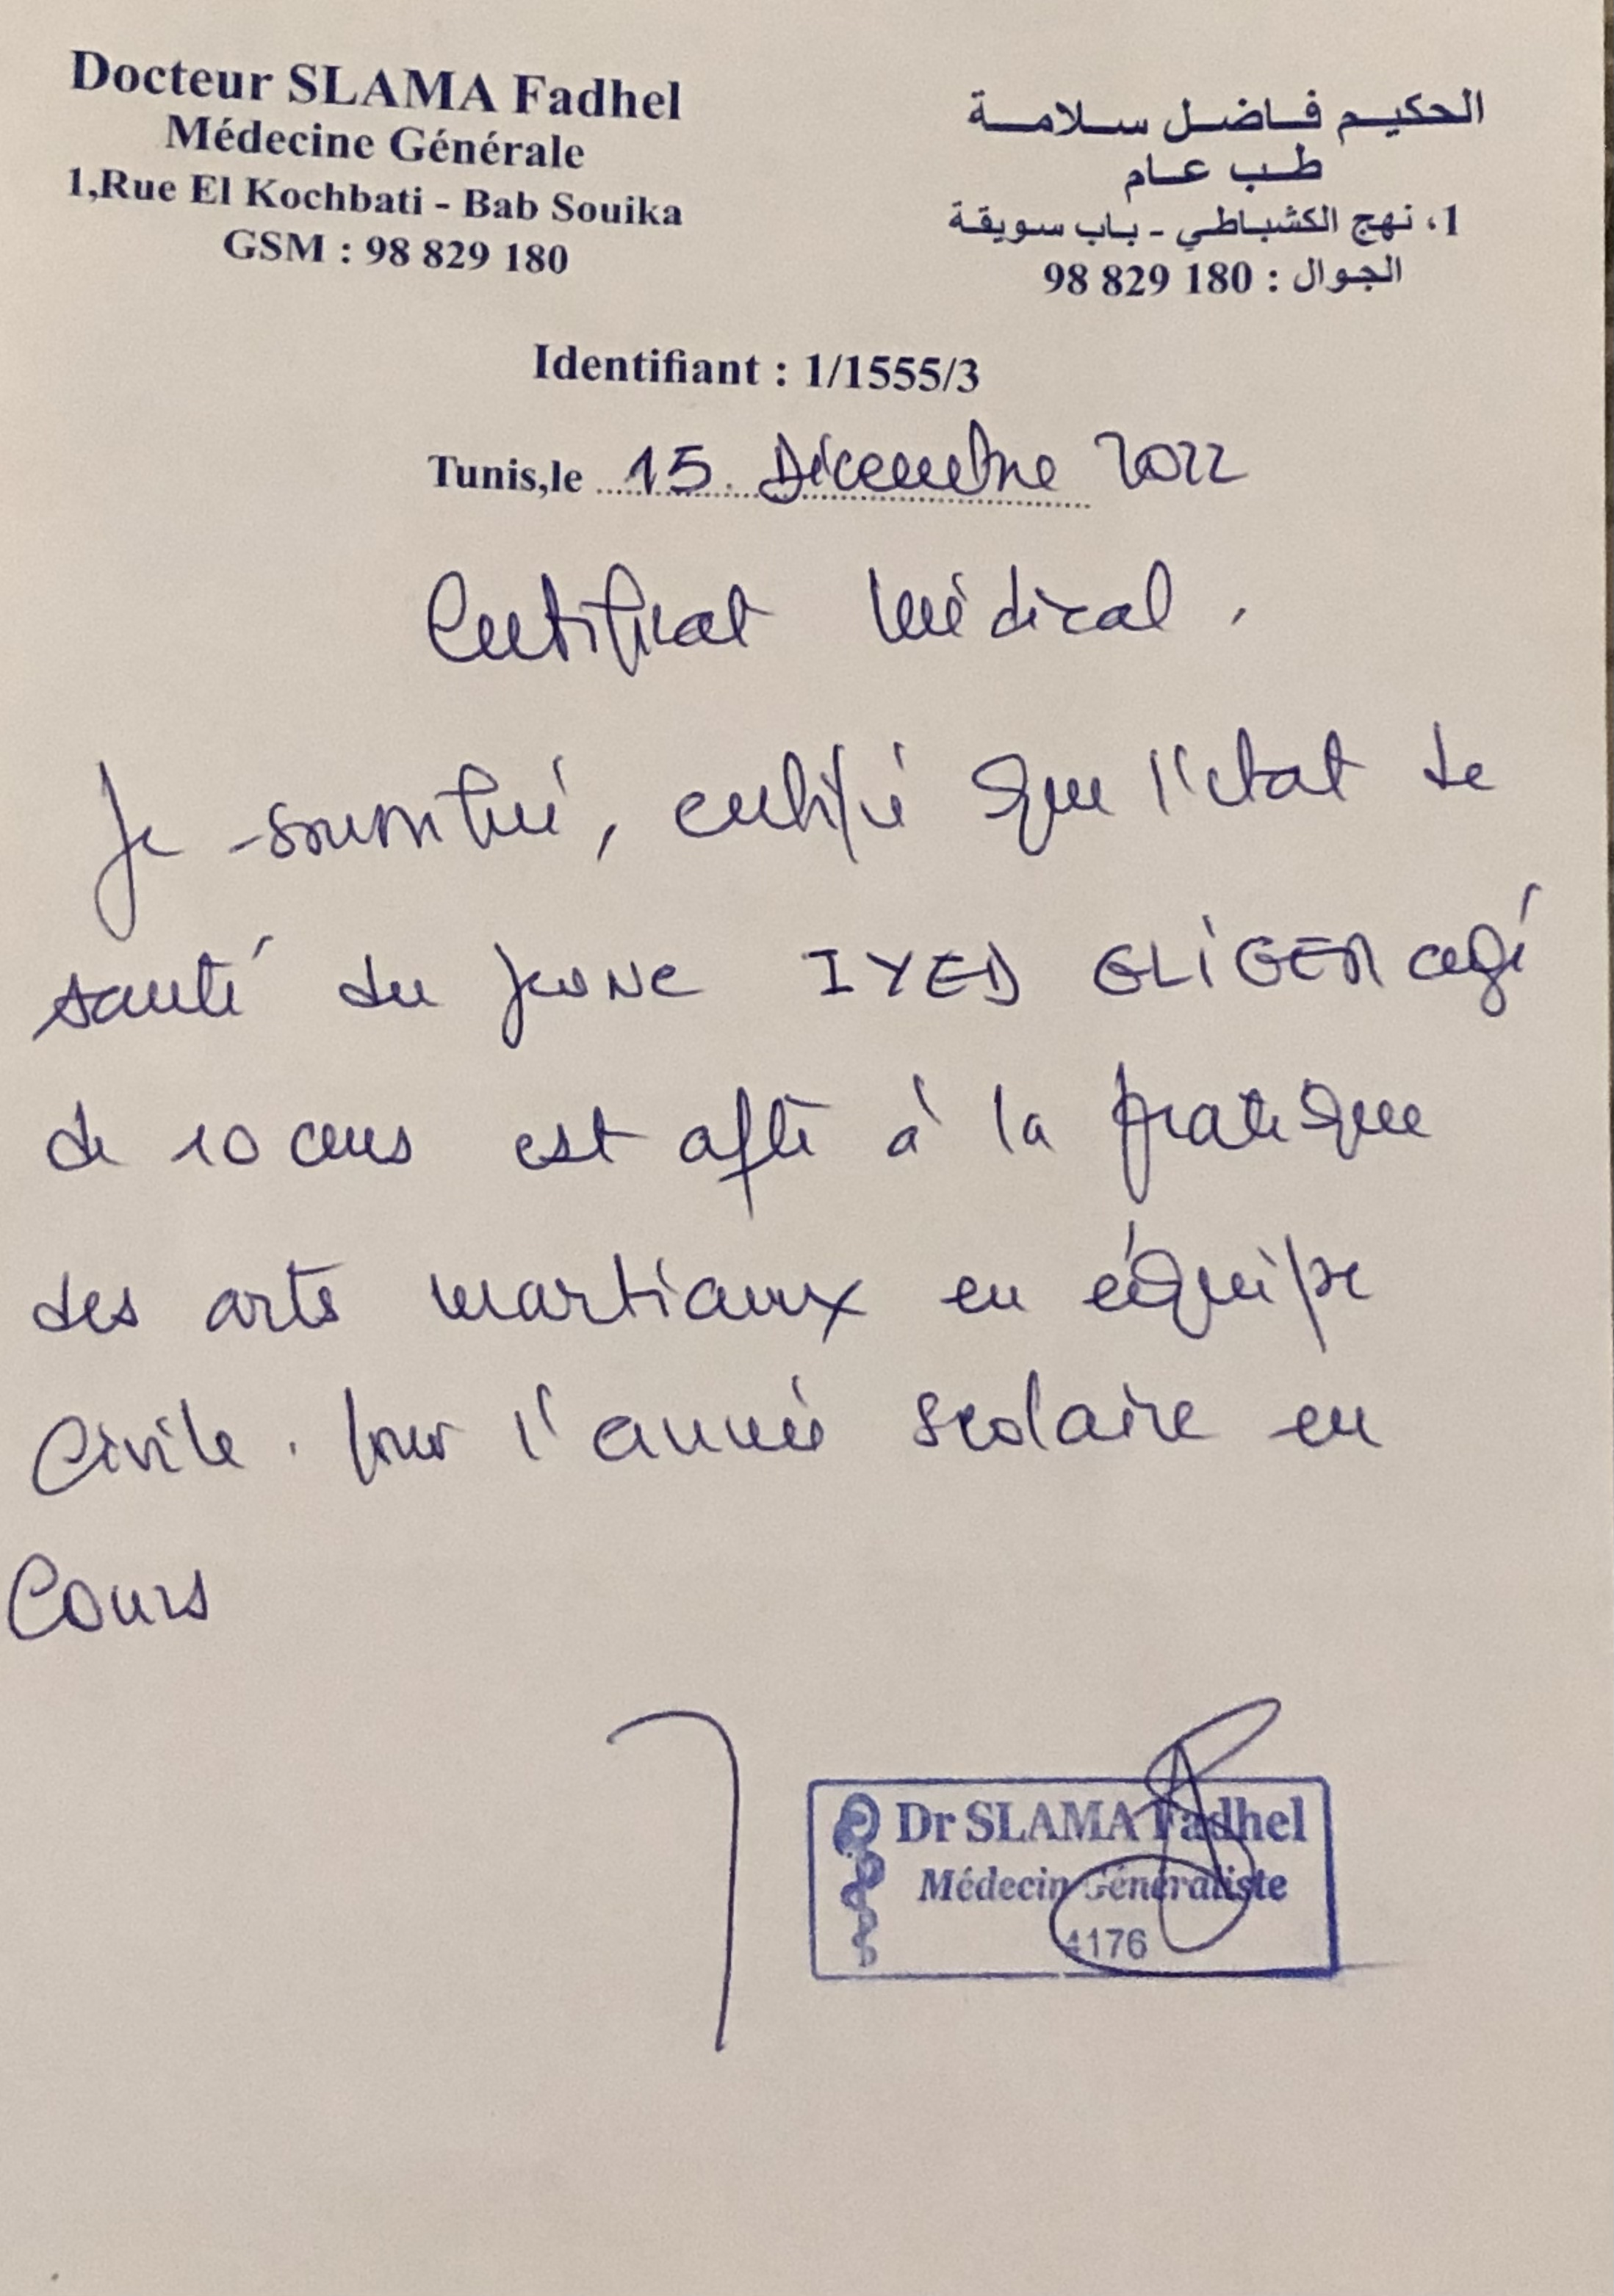 Docteur SLAMA Fadhel
Médecine Générale
1,Rue El Kochbati - Bab Souika
GSM : 98 829 180
الحكيم فاضل سلامة
طب عام
1، نهج الكشباطي - باب سويقة
الجوال : 180 829 98
Identifiant : 1/1555/3
Tunis,le 15 Décembre 2022
Certificat Médical.
Je soussigné, certifié que l'état de
santé du jeune IYED GLIGER agé
de 10 ans est apte à la pratique
des arts martiaux en équipe
Civile. pour l'année scolaire en
Cours
Dr SLAMA Fadhel
Médecin Généraliste
4176